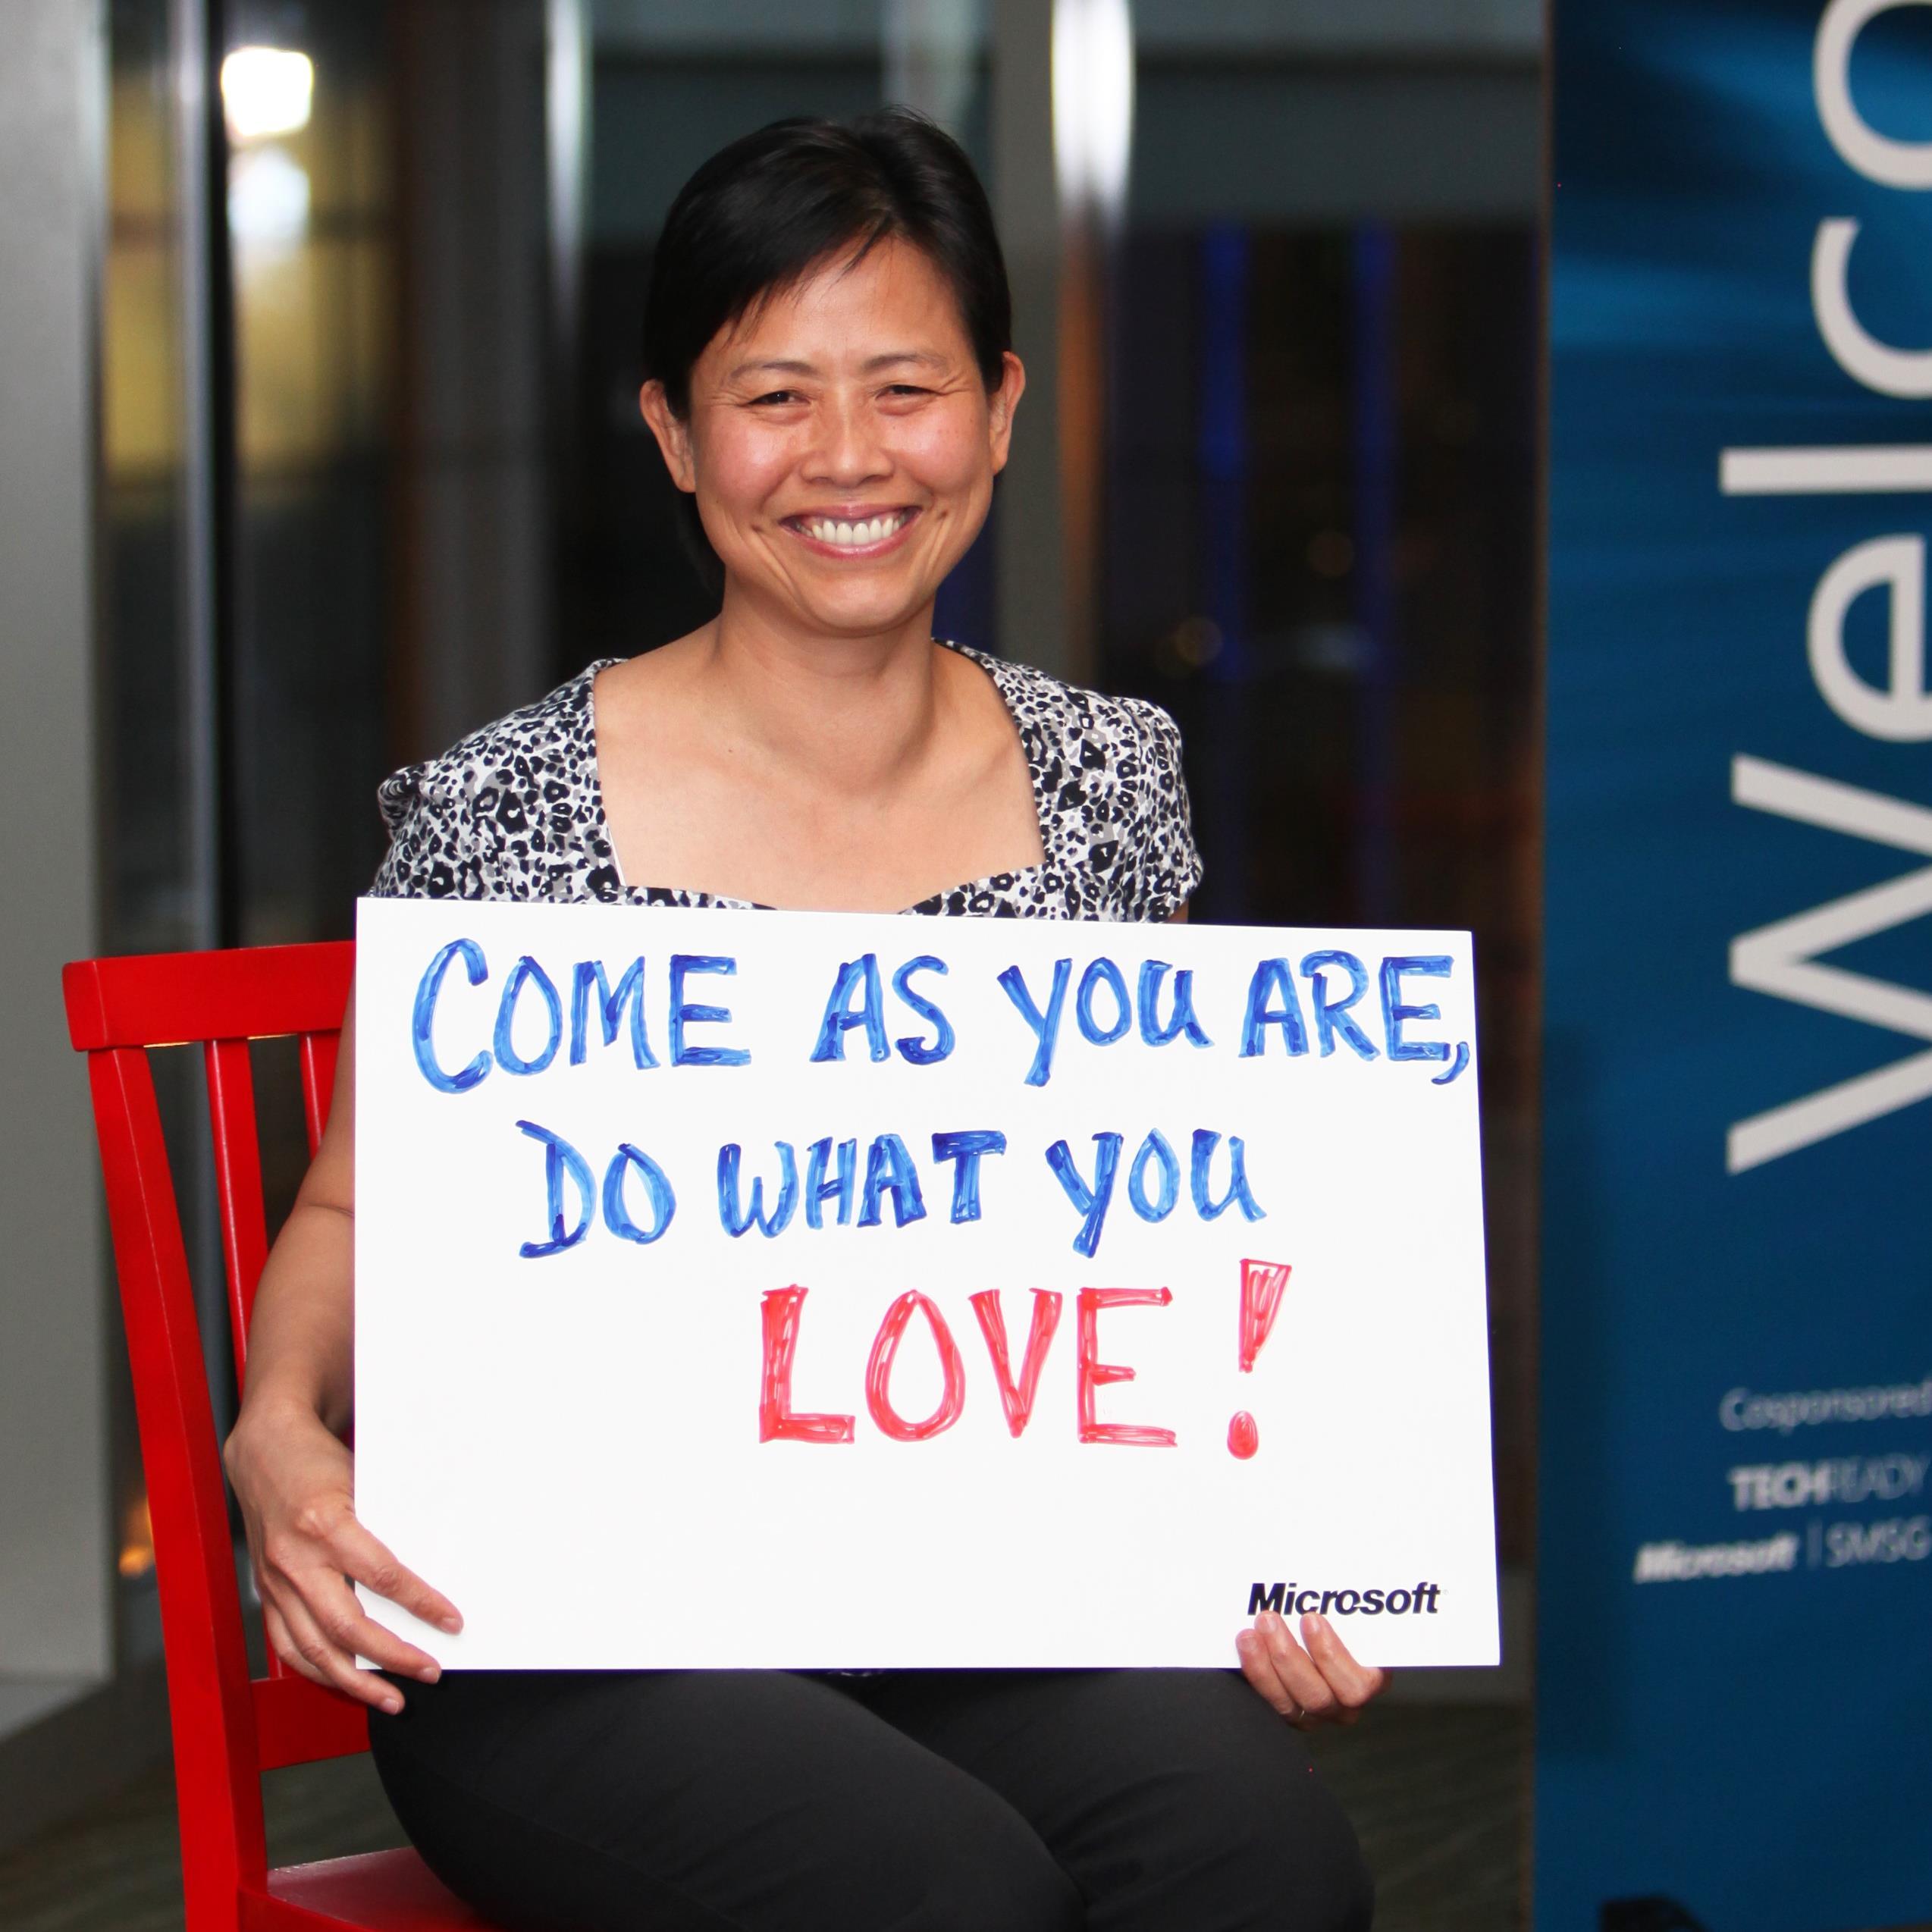 COME AS YOU ARE,
DO WHAT YOU
LOVE!
Microsoft
Welco
Cosponsored
TECHREADY
Microsoft | SMSG